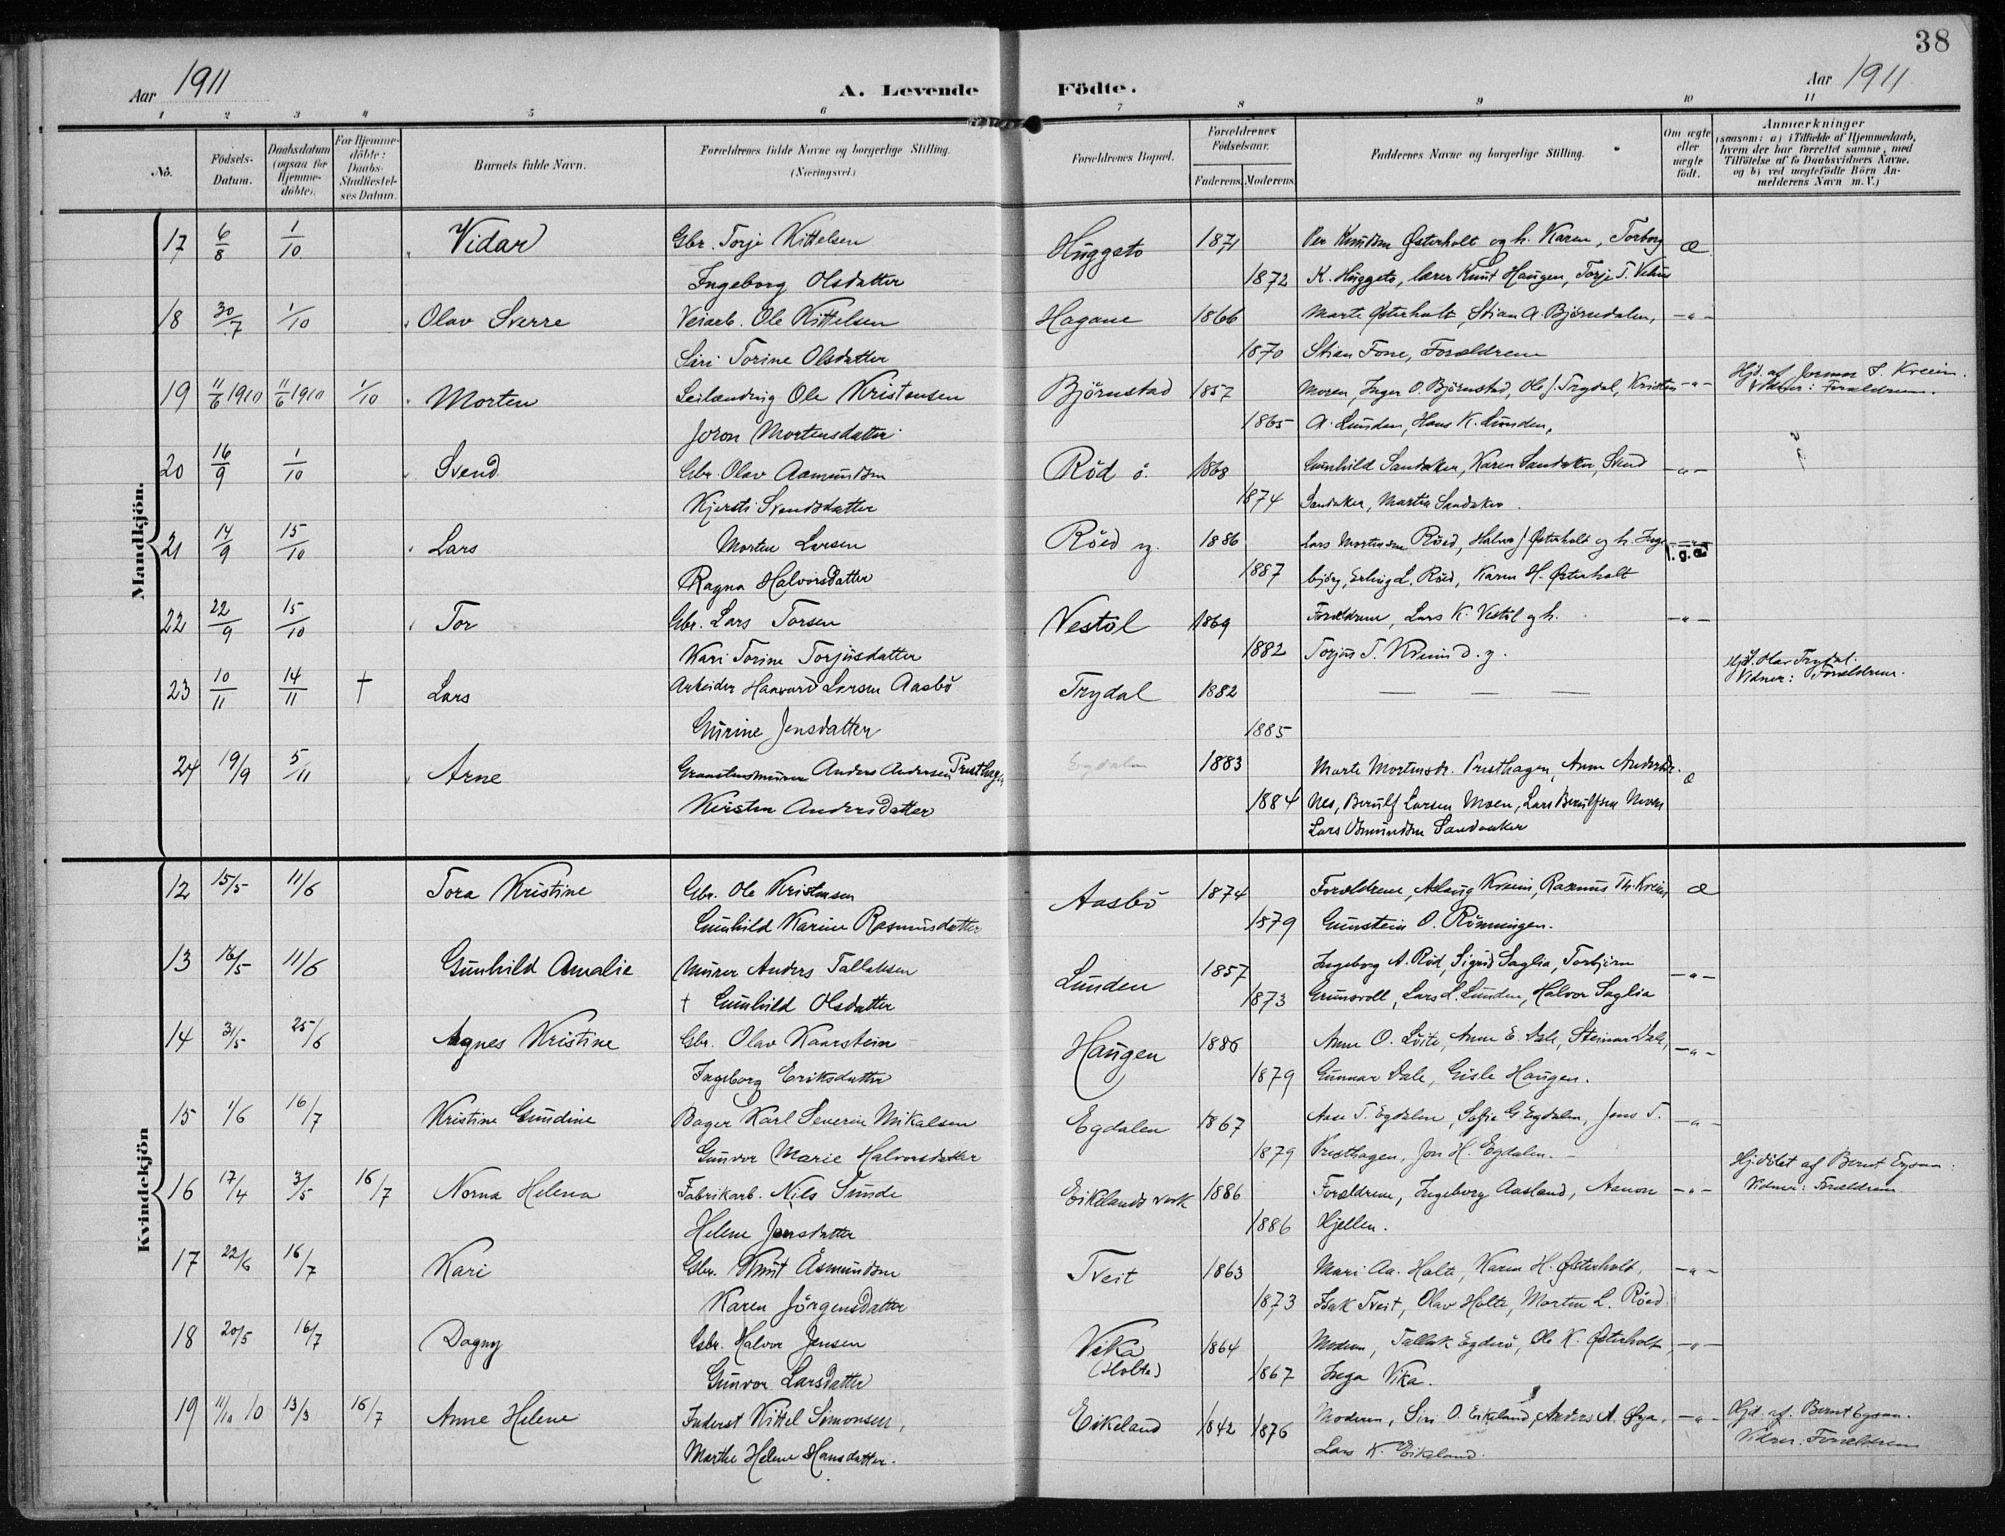 38
Aar 1911 A. Levende Födte. Aar 1911
1 2 3 4 5 6 7 8 9 10 11
No. Födsels-Datum. Daabsdatum (ogsaa for Hjemmedöbte). For Hjemmedöbte: Daabs-Stadfæstelses Datum. Barnets fulde Navn. Forældrenes fulde Navne og borgerlige Stilling. (Næringsvei.) Forældrenes Bopæl. Forældrenes Födselsaar. Faderens. Moderens. Faddernes Navne og borgerlige Stilling. Om ægte eller uægte födt. Anmærkninger (saasom: a) i Tilfælde af Hjemmedaab, hvem der har forrettet samme, med Tilföielse af to Daabsvidners Navne. og b) ved uægtefödte Börn Anmelderens Navn m. V.)
Mandkjön.
17 6/8 1/10 Vidar Gbr. Torje Kittelsen Huggeto 1871 Per Knudsen Østerholt og h. Karen, Torborg æ
Ingeborg Olsdatter 1872 K. Huggeto, lærer Knut Haugen, Torje T.
18 30/7 1/10 Olav Sverre Veiarb. Ole Kittelsen Hagane 1866 Marte Østerholt, Stian A. Björndalen, -"-
Siri Torine Olsdatter 1870 Stian Fone, Forældrene
19 11/6 1910 11/6 1910 1/10 Morten Leilænding Ole Kristensen Björnstad 1857 Moren, Inger O. Björnstad, Ole J. Trydal, Kristen -"- Hjd. af Jorunn S. Kveim. Vidner: Forældrene.
Joron Mortensdatter 1865 A. Lunden, Hans K. Lunden,
20 16/9 1/10 Svend Gbr. Olav Aamundsen Röd ö. 1868 Gunhild Sandaker, Karen Sandaker, Svend -"-
Kjersti Svendsdatter 1874 Sandaker, Martin Sandaker.
21 14/9 15/10 Lars Morten Larsen Röed y. 1886 Lars Mortensen Röed, Halvor J Østerholt og h. Inge
Ragna Halvorsdatter 1887 björg, Erling L. Röed, Karen H. Østerholt
22 22/9 15/10 Tor Gbr. Lars Torsen Vestöl 1869 Forældrene, Lars K. Vestöl og h. -"-
Kari Torine Torjusdatter 1882 Torjus T. Kveim d. y.
23 10/11 14/11 † Lars Arbeider Haavard Larsen Aasbö Trydal 1882 — — — Hjd. Olav Trydal. Vidner: Forældrene.
Gurine Jensdatter 1885
24 19/9 5/11 Arne Anders Andersen Presthagen Egdalen 1883 Marte Mortensdr. Presthagen, Anne Andersdr. æ
Kirsten Andersdatter 1884 Nes, Berulf Larsen Moen, Lars Berulfsen Moen
Lars Osmundsen Sandaaker
Kvindekjön
12 15/5 11/6 Tora Kristine Gbr. Ole Kristensen Aasbö 1874 Forældrene, Aslaug Kveim, Rasmus Th. Kveim æ
Gunhild Karine Rasmusdatter 1879 Gunstein O. Rönningen.
13 16/5 11/6 Gunhild Amalie Murer Anders Tallaksen Lunden 1857 Ingeborg A. Röd, Sigrid Saglia, Torbjörn -"-
† Gunhild Olsdatter 1873 Grunsvoll, Lars L. Lunden, Halvor Saglia
14 31/5 25/6 Agnes Kristine Gbr. Olav Kaarstein Haugen 1886 Anne O. Löite, Anne E. Dale, Steinar Dale, -"-
Ingeborg Eriksdatter 1879 Gunnar Dale, Gisle Haugen.
15 1/6 16/7 Kristine Gundine Bager Karl Severin Mikalsen Egdalen 1867 Aase T. Egdalen, Sofie G Egdalen, Jens T. -"-
Gunvor Marie Halvorsdatter 1879 Presthagen, Jon H. Egdalen.
16 17/4 3/5 16/7 Norna Helena Fabrikarb. Nils Sunde Eikelands verk 1886 Forældrene, Ingeborg Aasland, Aanon -"- Hjdöbt af Bernt Eysan. Vidner: Forældrene
Helene Jensdatter 1886 Hjellen.
17 22/6 16/7 Kari Gbr. Knut Åsmundsen Tveit 1863 Mari Aa. Holte, Karen H. Østerholt, -"-
Karen Jörgensdatter 1873 Isak Tveit, Olav Holte, Morten L. Röed.
18 20/5 16/7 Dagny Gbr. Halvor Jensen Vika (Holte) 1864 Moderen, Tallak Egderö, Ole K. Østerholt, -"-
Gunvor Larsdatter 1867 Inga Vika.
19 11/10 10 13/3 16/7 Anne Helene Inderst Kittel Simonsen, Eikeland 1842 1876 Moderen, Siri O. Eikeland, Anders A. Øya, -"- Hjd. af. Bernt Eysan. Vidner. Forældrene
Marthe Helene Hansdatter. Lars K. Eikeland.